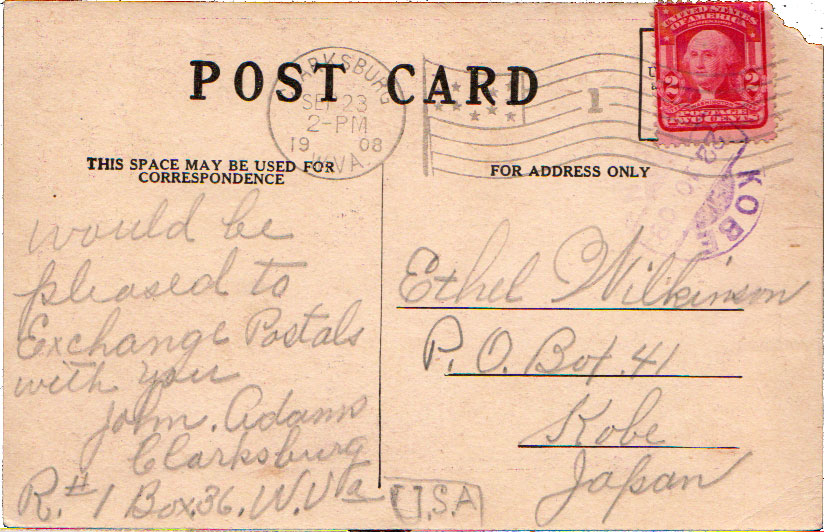 POST CARD
CLARKSBURG
SEP 23
2-PM
19 08
W.VA.
1
UNITED STATES
OF AMERICA
2 2
POSTAGE
TWO CENTS
KOBE
THIS SPACE MAY BE USED FOR
CORRESPONDENCE
FOR ADDRESS ONLY
would be
pleased to
Exchange Postals
with you
John. Adams
Clarksburg
R.# 1 Box.36. W.Va
U.S.A
Ethel Wilkinson
P.O. Box. 41
Kobe
Japan